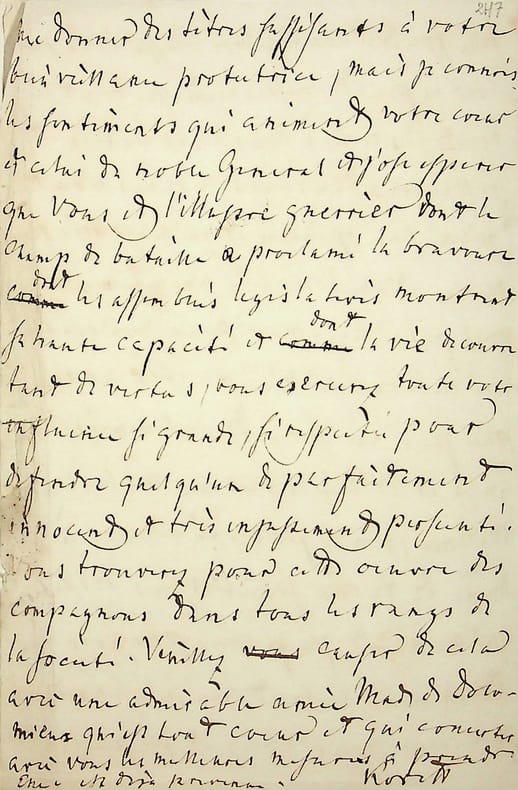 247
me donner des titres suffisants à votre
bienveillance protectrice, mais je connois
les sentiments qui animent votre coeur
et celui du noble General et j'ose esperer
que Vous et l'illustre guerrier dont le
champ de bataille a proclamé la bravoure
dont
comme les assemblées legislatives montrent
dont
sa haute capacité et comme la vie decouvre
tant de vertus, vous exercerez toute votre
influence si grande, si respectée pour
defendre quelqu'un de parfaitement
innocent et très injustement persecuté.
Vous trouverez pour cette oeuvre des
compagnons dans tous les rangs de
la societé. Veuillez vous causer de cela
avec une admirable amie Mad. de Dolo-
mieu qui est tout coeur et qui concertera
avec vous les meilleures mesures à prendre
Elle est déjà prévenue. Koreff